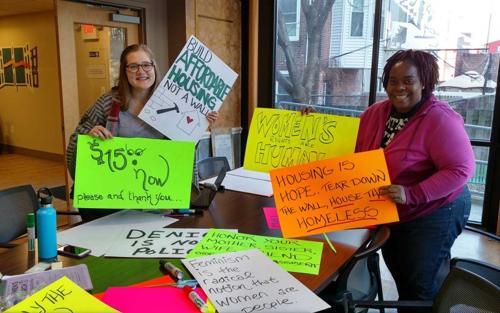 BUILD
AFFORDABLE
HOUSING
NOT A WALL
$15.00
NOW
please and thank you...
WOMEN'S
RIGHTS ARE
HUMAN
HOUSING IS
HOPE. TEAR DOWN
THE WALL, HOUSE THE
HOMELESS
DENIAL
IS NOT
POLICY
HONOR YOUR
MOTHER SISTER
WIFE
FRIEND
Feminism is
the radical
notion that
women are
people.